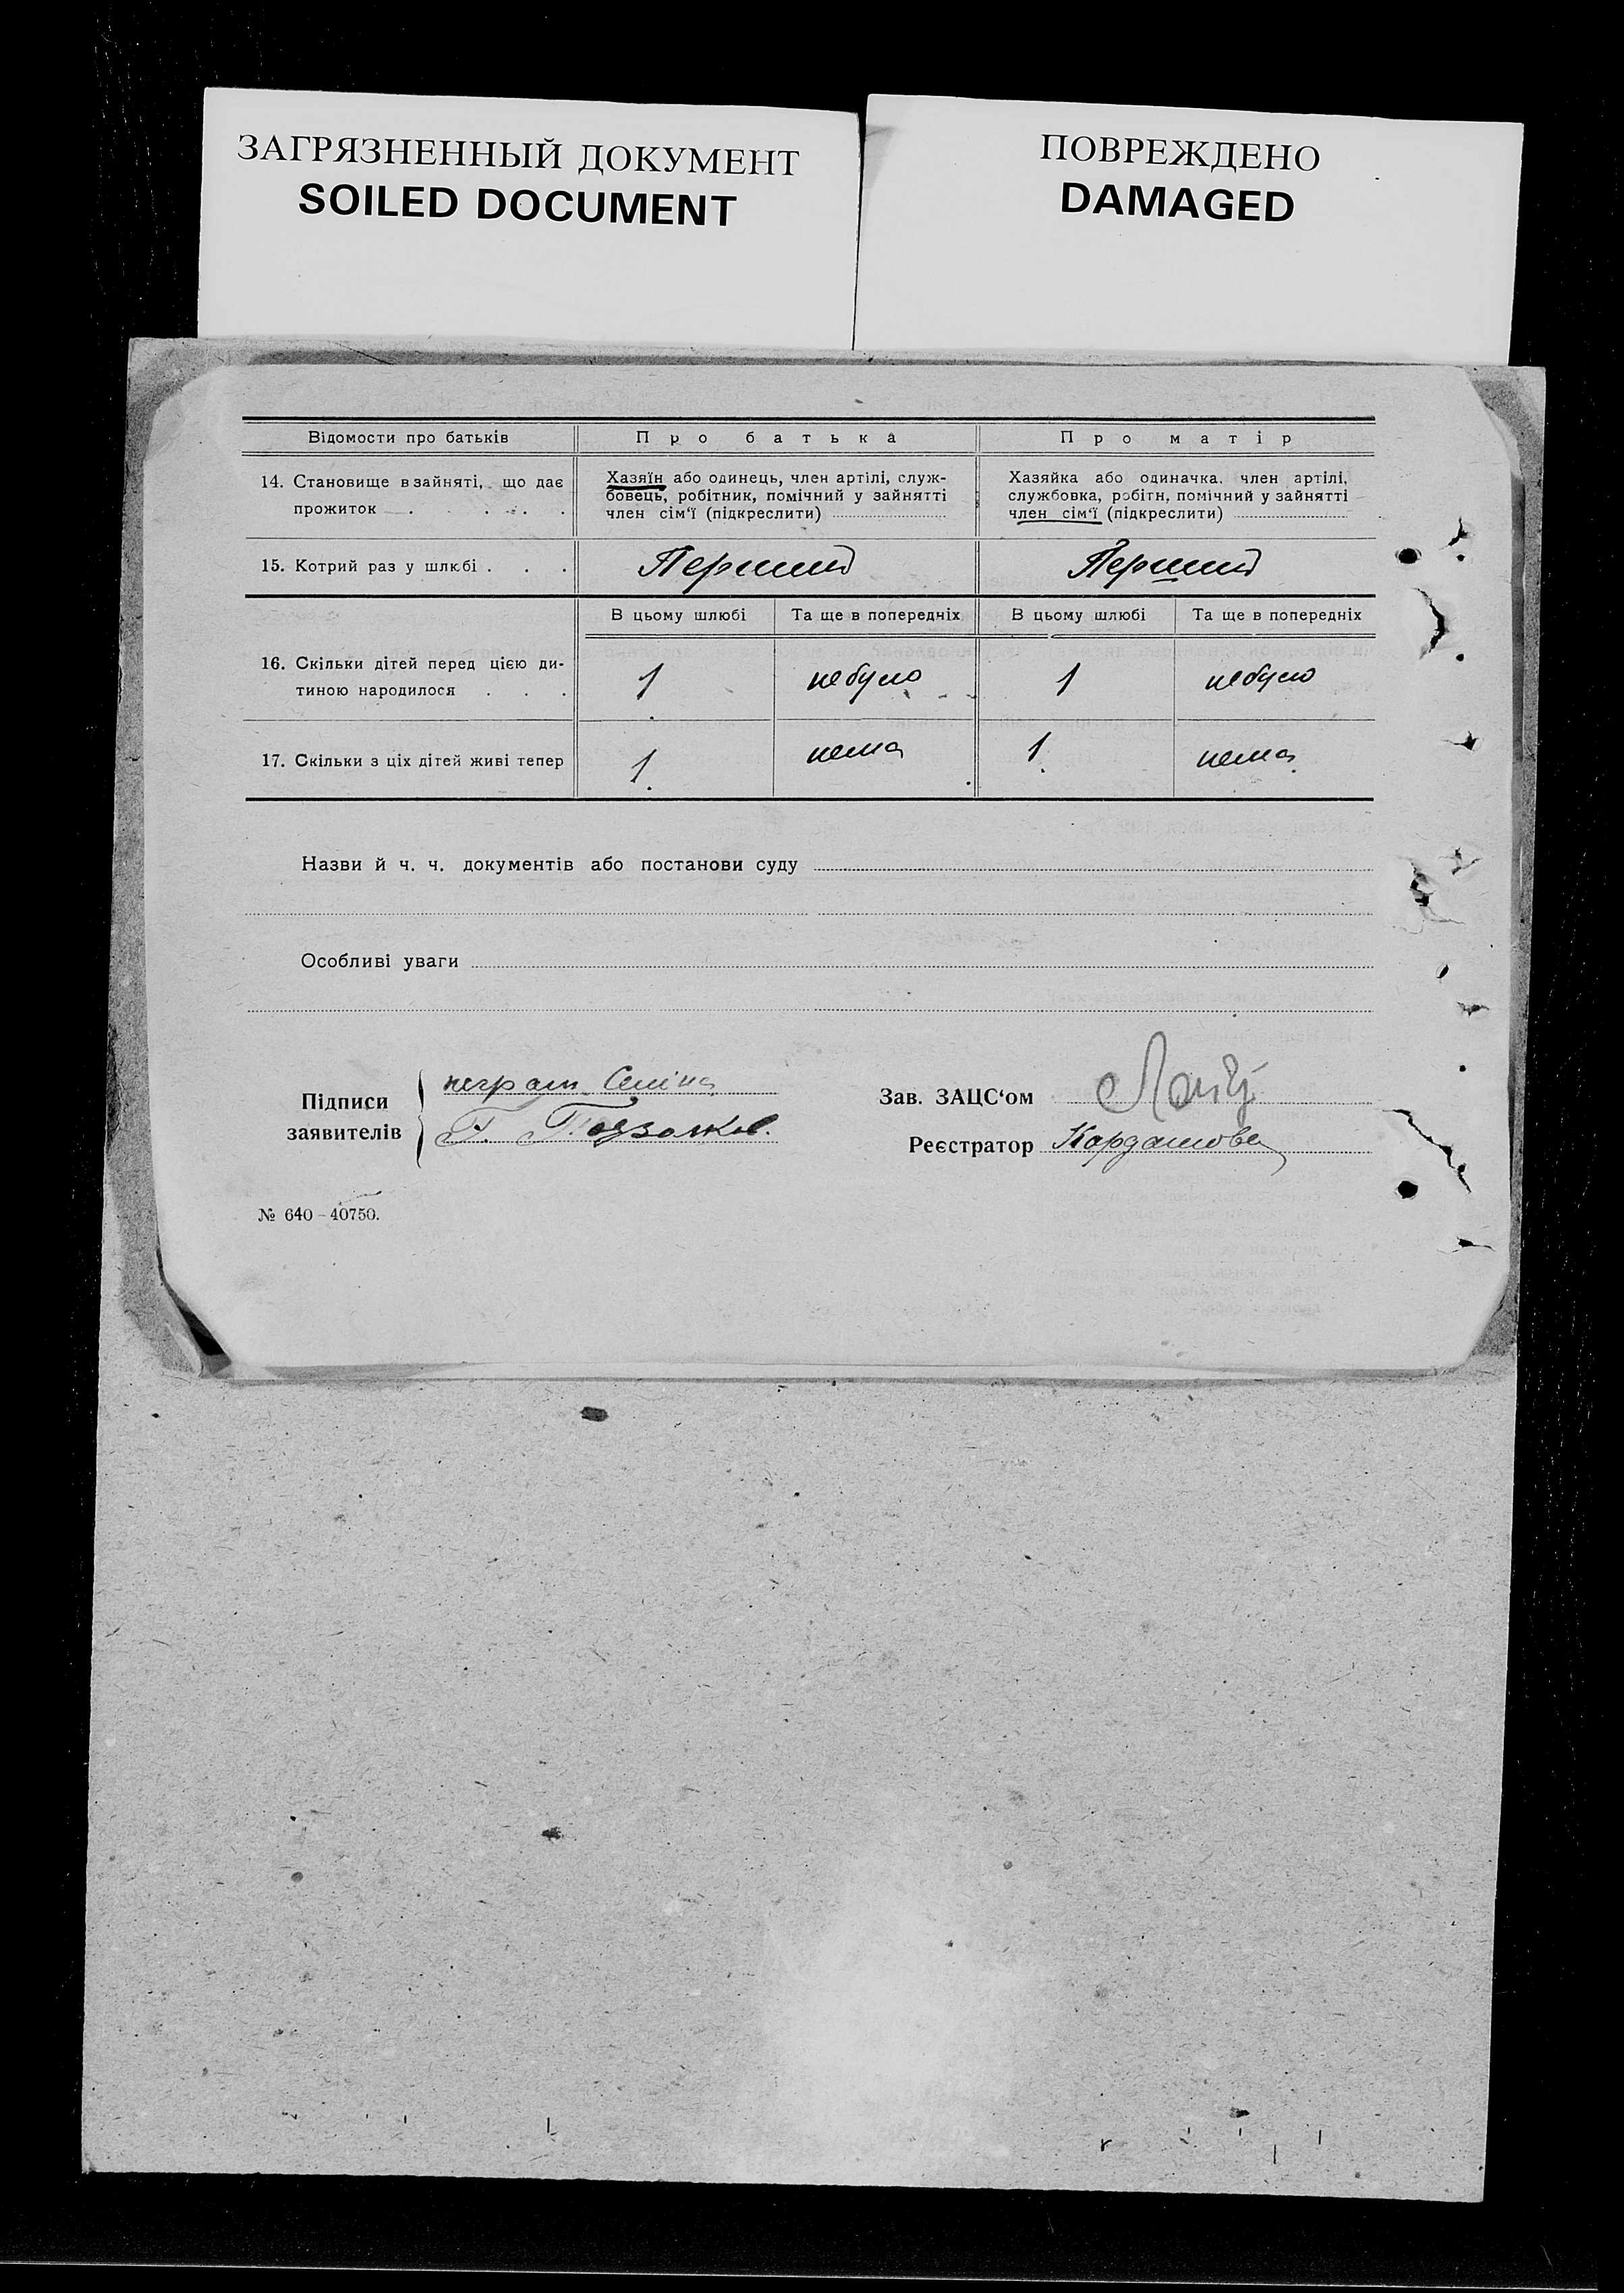 ЗАГРЯЗНЕННЫЙ ДОКУМЕНТ
SOILED DOCUMENT
ПОВРЕЖДЕНО
DAMAGED
Відомости про батьків
Про батька
Про матір
14. Становище в зайняті, що дає
прожиток . . . . .
Хазяїн або одинець, член артілі, служ-
бовець, робітник, помічний у зайнятті
член сім‘ї (підкреслити)
Хазяйка або одиначка. член артілі,
службовка, робітн, помічний у зайнятті
член сім‘ї (підкреслити)
15. Котрий раз у шлюбі . . .
Перший
Перший
В цьому шлюбі
Та ще в попередніх
В цьому шлюбі
Та ще в попередніх
16. Скільки дітей перед цією ди-
тиною народилося . . .
1
небуло
1
небуло
17. Скільки з ціх дітей живі тепер
1
нема
1
нема
Назви й ч. ч. документів або постанови суду
Особливі уваги
Підписи
заявителів
неграм
Г.
Зав. ЗАЦС‘ом
Реєстратор Кардашова
№ 640 – 40750.